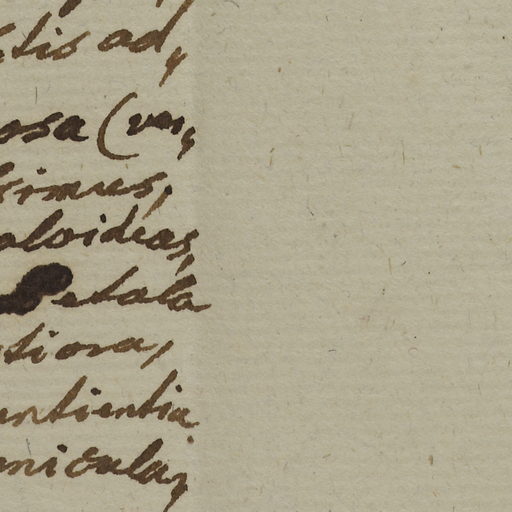 stis ad,
osa (var,
simus,
aloideas,
Petala
tiora,
untientia
niculai,